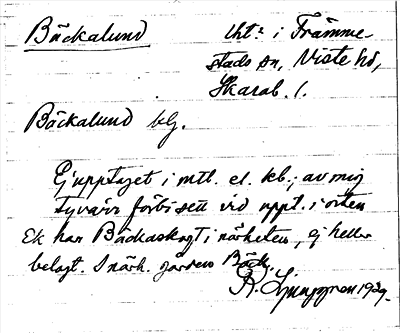 Bäckalund
tht: i Främme-
stads sn, Viste hd,
Skarab. l.
Bäckalund blg.
Ej upptaget i mtl. el. kb.; av mig
tyvärr förbisett vid uppt. i orten
Ek har Bäckaskogt i närheten, ej heller
belagt. I närh. gården Bäck.
R. Ljunggren 1929.